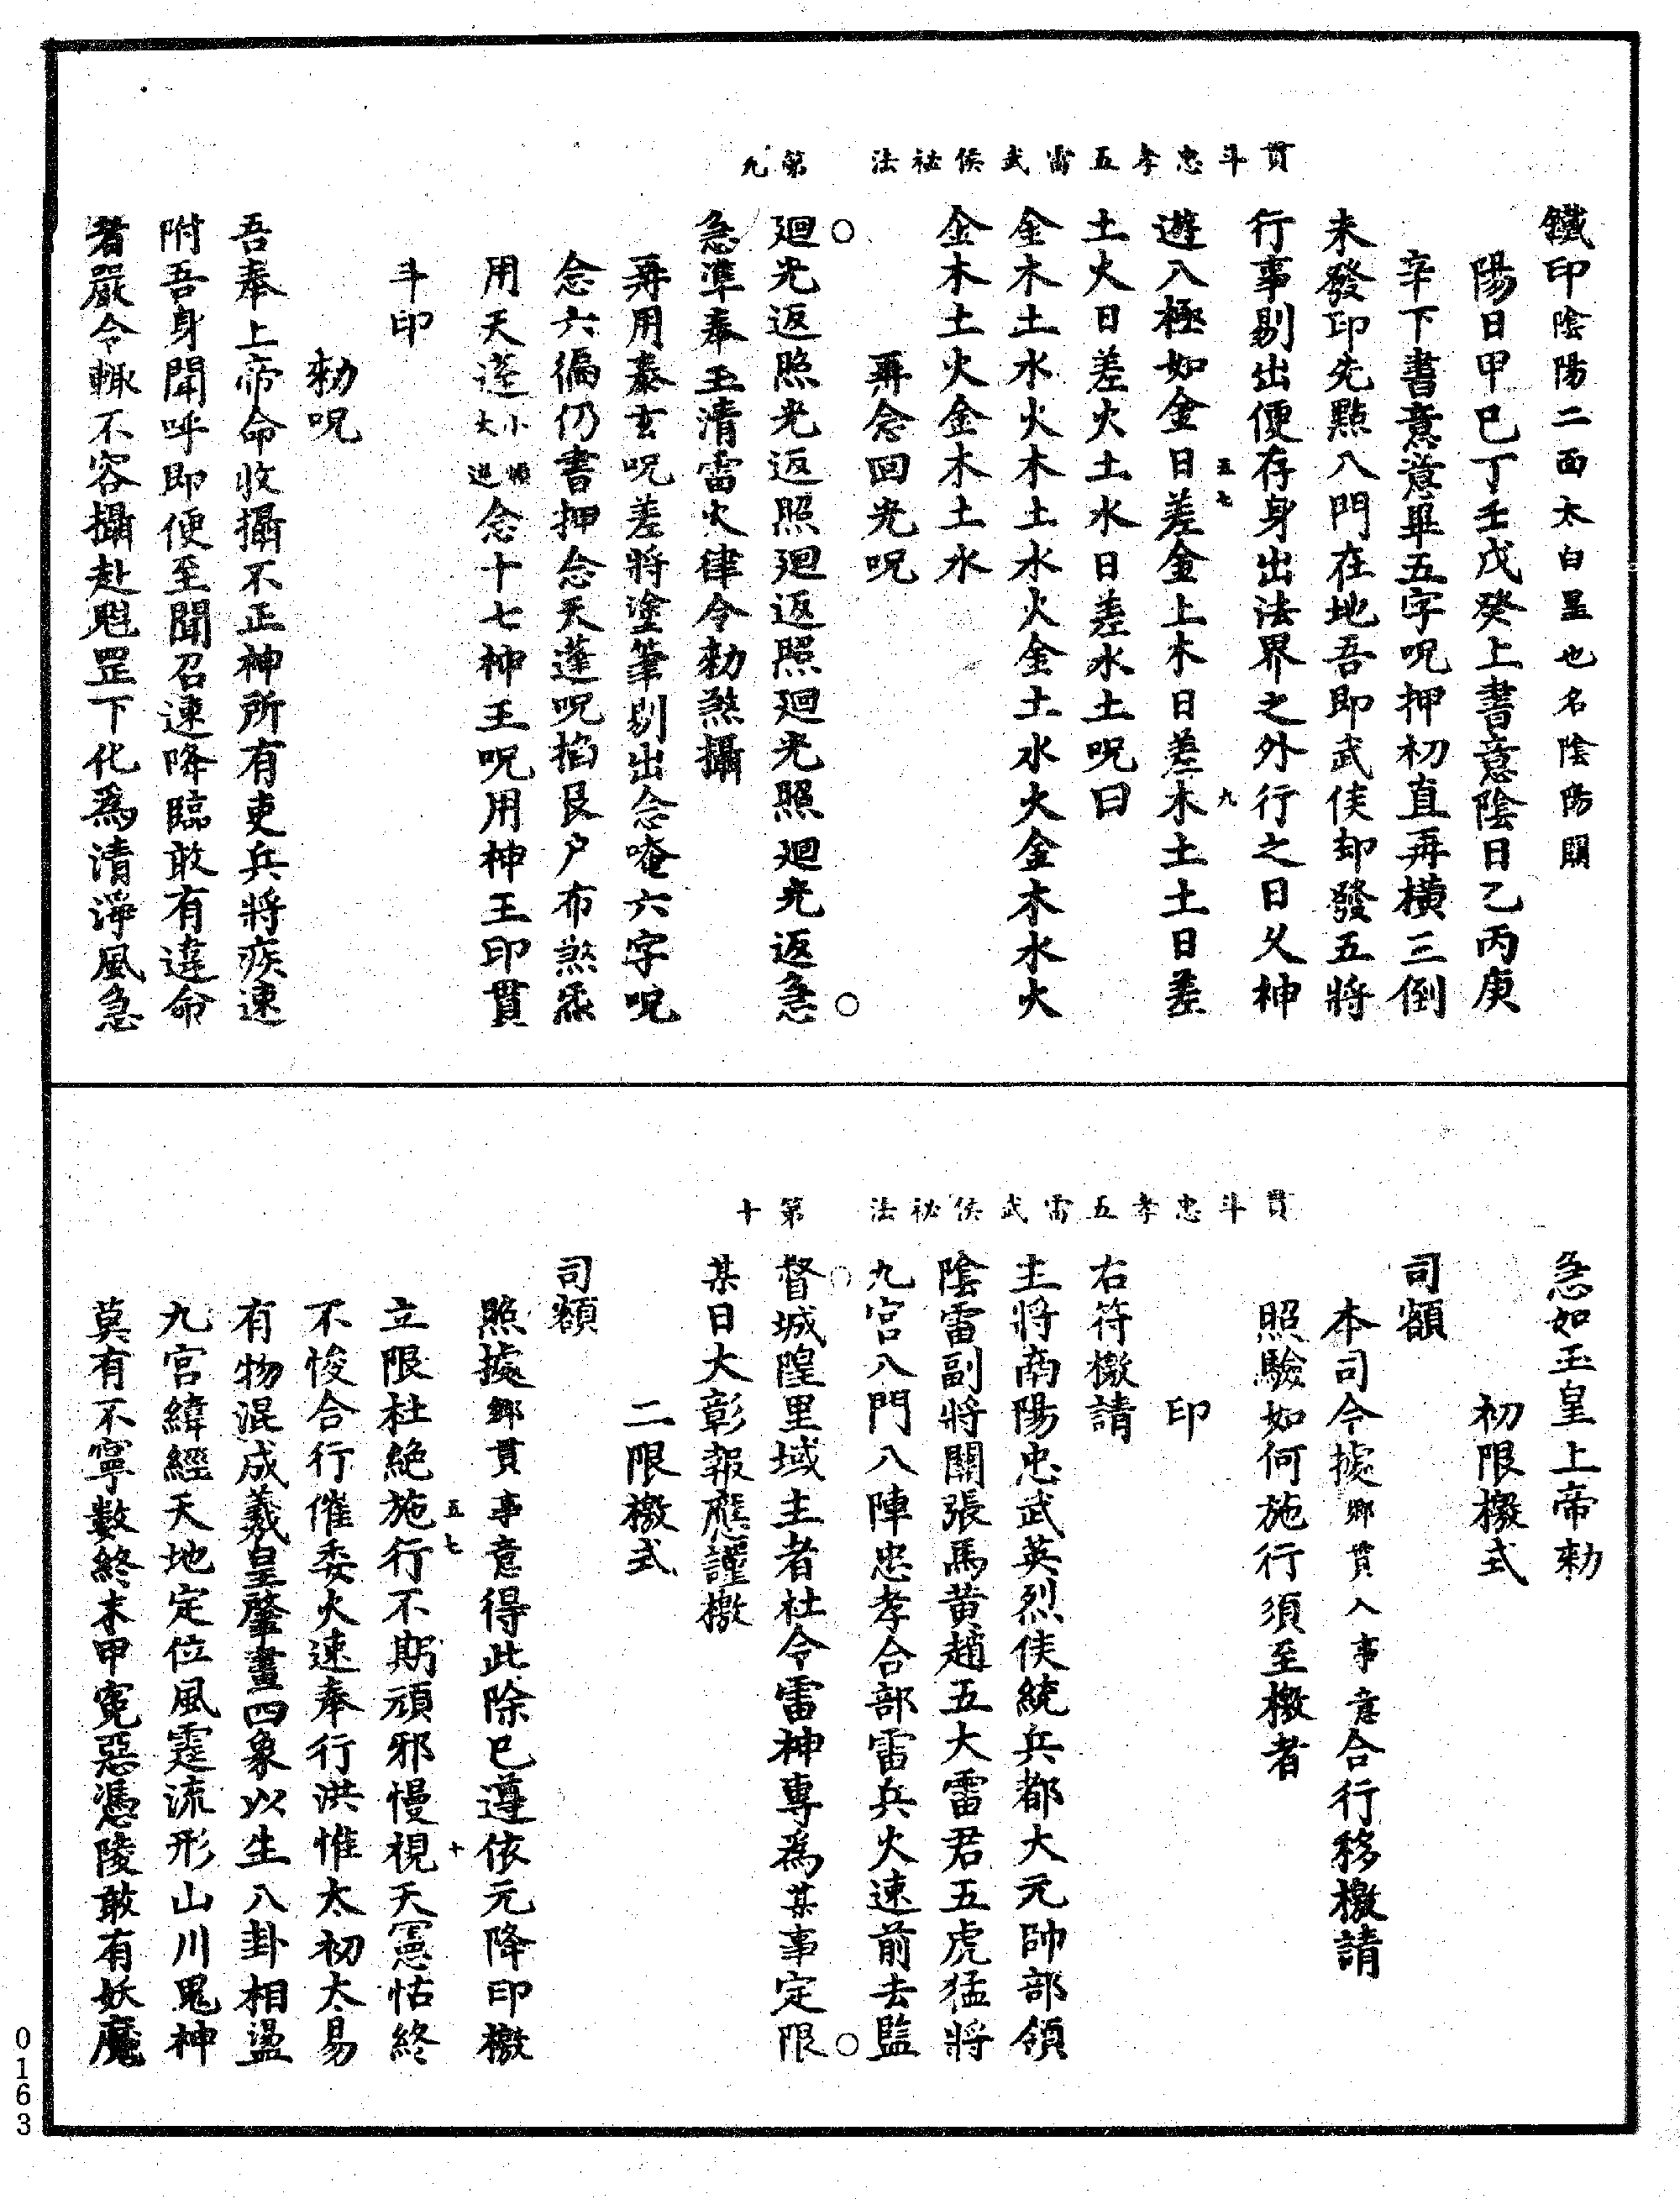 貫斗忠孝五雷武侯祕法　第九
鐵印陰陽二面太白星也名陰陽關
陽日甲巳丁壬戊癸上書意陰日乙丙庚
辛下書意意畢五字呪押初直再橫三倒
未發印先點八門在地吾即武侯却發五將
行事剔出便存身出法界之外行之日久神
遊八極如金日差金上木日差木土土日差
五七　九
土火日差火土水日差水土呪曰
金木土水火木土水火金土水火金木水火
金木土火金木土水
再念回光呪
廻光返照光返照廻返照廻光照廻光返急
急準奉玉清雷火律令勑煞攝
再用秦玄呪差將塗筆剔出念唵六字呪
念六徧仍書押念天蓬呪掐艮户布煞炁
用天蓬小順大逆念十七神王呪用神王印貫
斗印
勑呪
吾奉上帝命收攝不正神所有吏兵將疾速
附吾身聞呼即便至聞召速降臨敢有違命
者嚴令輙不容攝赴魁罡下化為清淨風急
貫斗忠孝五雷武侯祕法　第十
急如玉皇上帝勑
初限檄式
司額
本司今據鄉貫入事意合行移檄請
照驗如何施行須至檄者
印
右符檄請
主將南陽忠武英烈侯統兵都大元帥部領
陰雷副將關張馬黄趙五大雷君五虎猛將
九宫八門八陣忠孝合部雷兵火速前去監
督城隍里域主者社令雷神專為某事定限
某日大彰報應謹檄
二限檄式
司額
照據鄉貫事意得此除已遵依元降印檄
立限杜絶施行不期頑邪慢視天憲怙終
五七　十
不悛合行催委火速奉行洪惟太初太易
有物混成羲皇肇畫四象以生八卦相盪
九宫緯經天地定位風霆流形山川鬼神
莫有不寧數終末甲寃惡憑陵敢有妖魔
0163